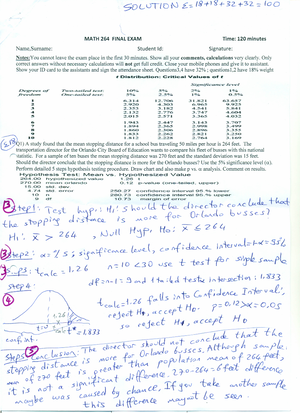 SOLUTION Σ=18+18+32+32=100
MATH 264 FINAL EXAM Time: 120 minutes
Name,Surname: Student Id: Signature:
Notes: You cannot leave the exam place in the first 30 minutes. Show all your comments, calculations very clearly. Only
correct answers without necessary calculations will not get full credit. Close your mobile phones and give it to assistant.
Show your ID card to the assistants and sign the attendance sheet. Questions3,4 have 32% ; questions1,2 have 18% weight
t Distribution: Critical Values of t
Significance level
Degrees of Two-tailed test: 10% 5% 2% 1%
freedom One-tailed test: 5% 2.5% 1% 0.5%
1 6.314 12.706 31.821 63.657
2 2.920 4.303 6.965 9.925
3 2.353 3.182 4.541 5.841
4 2.132 2.776 3.747 4.604
5 2.015 2.571 3.365 4.032
6 1.943 2.447 3.143 3.707
7 1.894 2.365 2.998 3.499
8 1.860 2.306 2.896 3.355
9 1.833 2.262 2.821 3.250
10 1.812 2.228 2.764 3.169
Q1) A study found that the mean stopping distance for a school bus traveling 50 miles per hour is 264 feet. The
transportation director for the Orlando City Board of Education wants to compare his fleet of busses with this national
statistic. For a sample of ten buses the mean stopping distance was 270 feet and the standard deviation was 15 feet.
Should the director conclude that the stopping distance is more for the Orlando busses? Use the 5% significance level (α).
Perform detailed 5 steps hypothesis testing procedure. Draw chart and also make p vs. α analysis. Comment on results.
Hypothesis Test: Mean vs. Hypothesized Value
264.00 hypothesized value 1.26 t
270.00 mean orlando 0.12 p-value (one-tailed, upper)
15.00 std. dev.
4.74 std. error 259.27 confidence interval 95.% lower
10 n 280.73 confidence interval 95.% upper
9 df 10.73 margin of error
Step1: Test hyp: H₁: should the director conclude that
the stopping distance is more for Orlando busses?
H₁: x̄ > 264 , Null Hyp: H₀: x̄ ≤ 264
Step2: α=%5; significance level, confidence interval=1-α=95%
Step3: tcalc=1.26 n=10<30 use t test for single sample
Step 4 df=n-1=9 and 1 tailed tcrit@ intersection: 1.833
tcalc=1.26 falls into Confidence Interval;
reject H₁, accept H₀. p=0.12>α=0.05
so reject H₁, accept H₀
Step5 Conclusion: The director should not conclude that the
stopping distance is more for Orlando busses. Although sample
mean of 270 feet is greater than population mean of 264 feet,
it is not a significant difference. 270-264=6 feet difference
maybe was caused by chance. If you take another sample
this difference may not be seen.